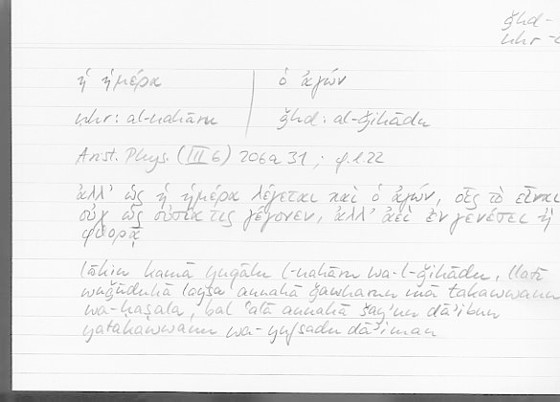 ǧhd -
nhr -
ἡ ἡμέρα
ὁ ἀγών
nhr: al-nahāru
ǧhd: al-ǧihādu
Arist. Phys. (III 6) 206a31; φ.1.22
ἀλλ' ὡς ἡ ἡμέρα λέγεται καὶ ὁ ἀγών, οἷς τὸ εἶναι
οὐχ ὡς οὐσία τις γέγονεν, ἀλλ' ἀεὶ ἐν γενέσει ἢ
φθορᾷ
lākin kamā yuqālu l-nahāru wa-l-ǧihādu, llatī
wuǧūduhā laysa annahā ǧawharun mā takawwana
wa-ḥaṣala, bal ʿalā annahā šayʾun dāʾibun
yatakawwanu wa-yufsadu dāʾiman